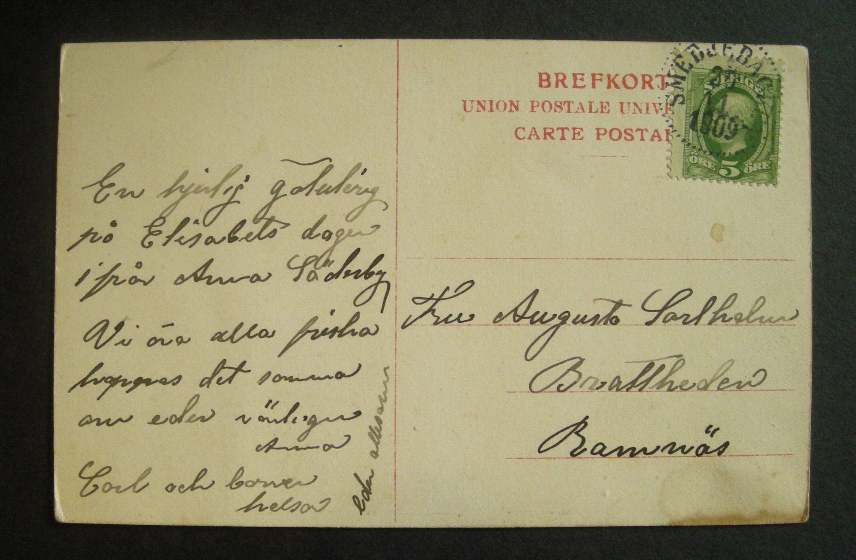 En hjertlig
på Elisabets dagen
ifrån Anna Söderby
Vi äro alla friska
hoppas det samma
om eder vänligen
Anna
Carl och barnen
helsa
eder allesam
BREFKORT
UNION POSTALE UNIVE
CARTE POSTAL
SMEDJEBACK
1909
5
ÖRE ÖRE
Fru Augusta Carlholm
Brattheden
Ramnäs